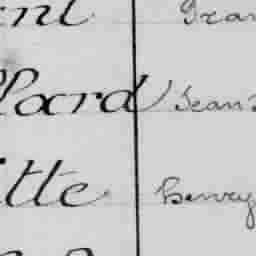 ent Fran
llard Jean
itte Henry